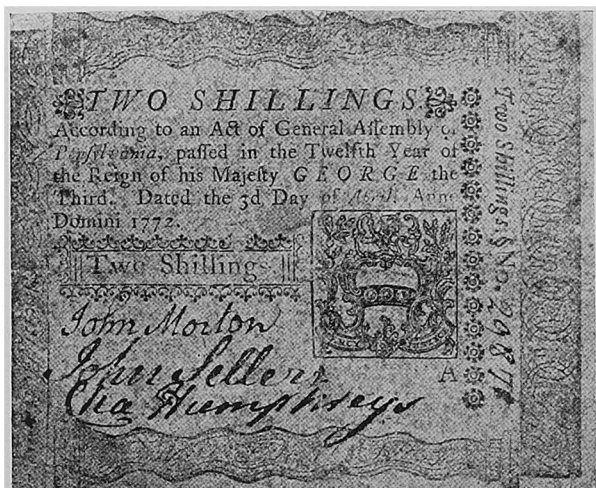 TWO SHILLINGS
According to an Act of General Aſſembly of
Penſylvania, paſſed in the Twelfth Year of
the Reign of his Majeſty GEORGE the
Third. Dated the 3d Day of April, Anno
Domini 1772.
Two Shillings
John Morton
John Sellers
Cha Humphreys
A
Two Shillings
No.